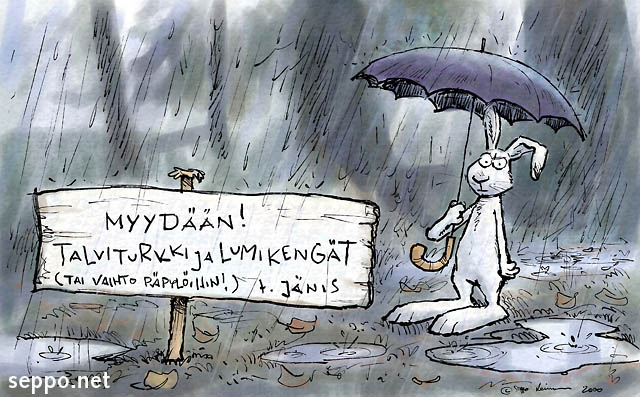 MYYDÄÄN!
TALVITURKKI JA LUMIKENGÄT
(TAI VAIHTO RÄPYLÖIHIN!) t. JÄNIS
seppo.net
© 2000